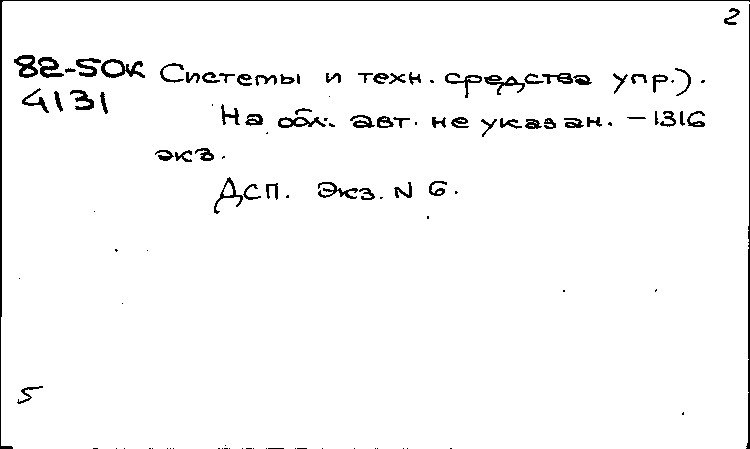 2
82-50к Системы и техн. средства упр.).
4131 На обл. авт. не указан. – 1316
экз.
Дсп. Экз. N 6.
5